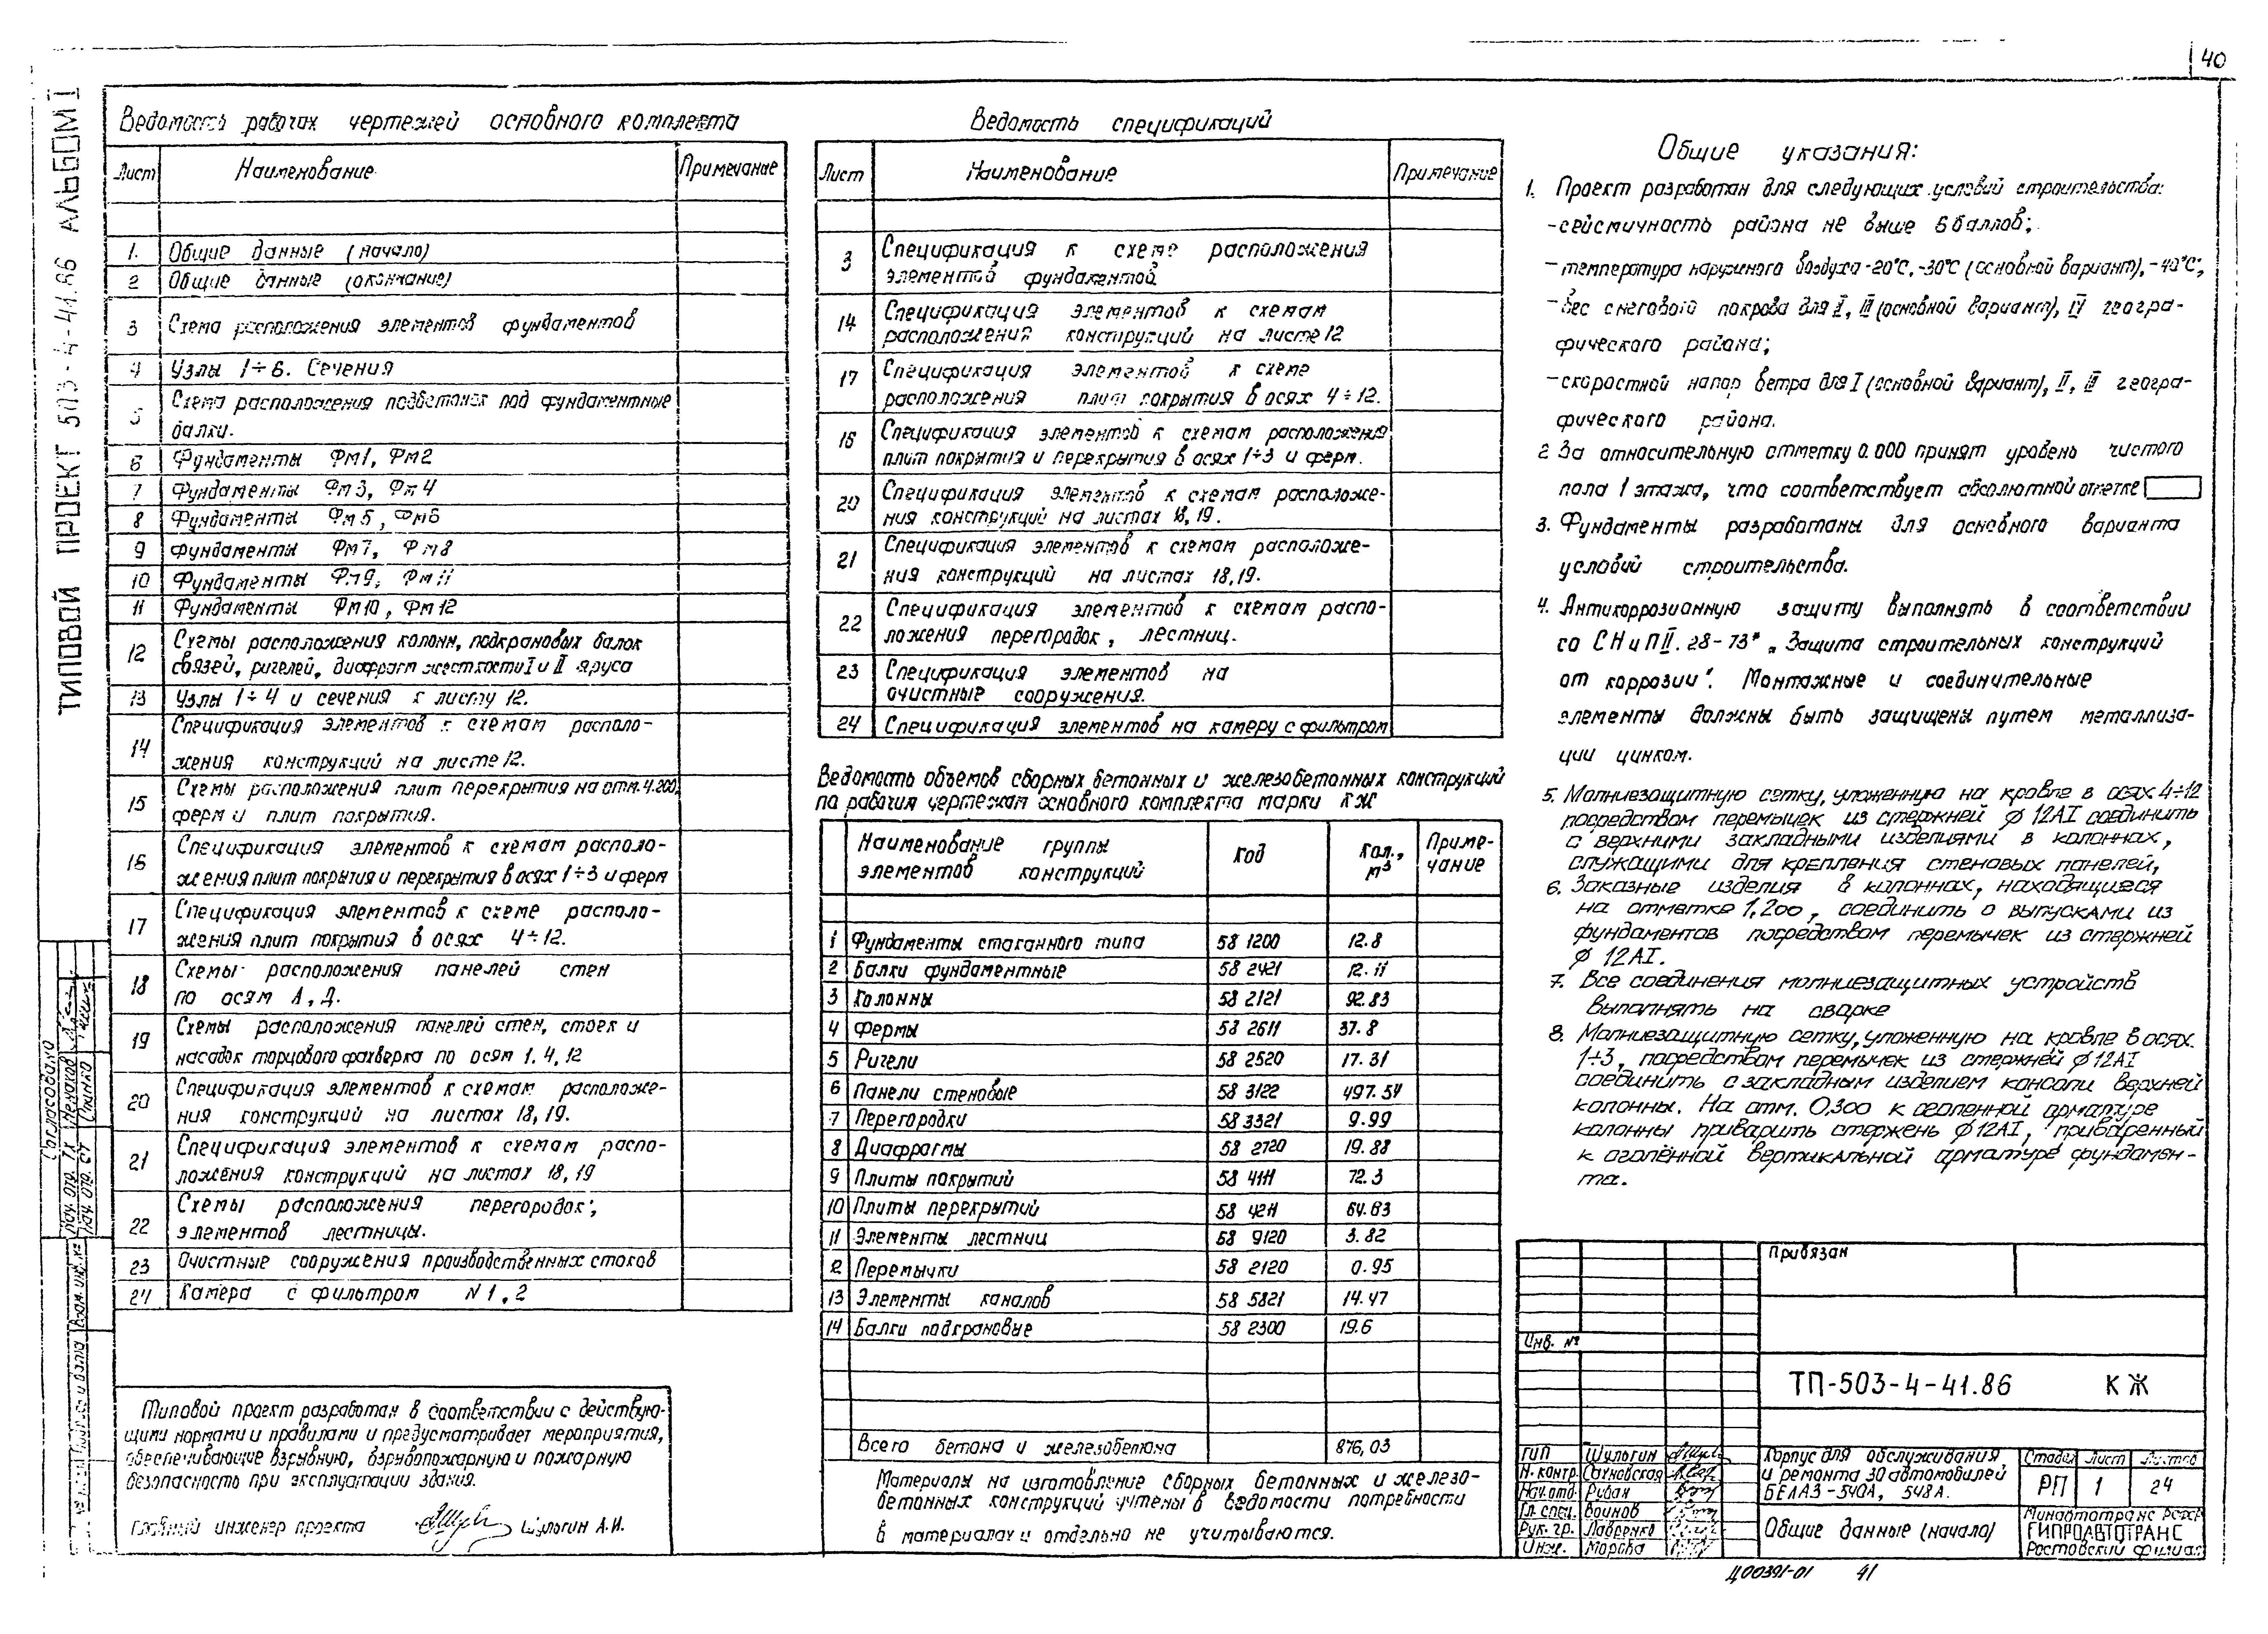 40
ТИПОВОЙ ПРОЕКТ 503-4-41.86 АЛЬБОМ I
Ведомость рабочих чертежей основного комплекта
Лист Наименование Примечание
1. Общие данные (начало)
2 Общие данные (окончание)
3 Схема расположения элементов фундаментов
4 Узлы 1÷6. Сечения
5 Схема расположения подбетонок под фундаментные
балки.
6 Фундаменты Фм1, Фм2
7 Фундаменты Фм3, Фм4
8 Фундаменты Фм5, Фм6
9 Фундаменты Фм7, Фм8
10 Фундаменты Фм9, Фм11
11 Фундаменты Фм10, Фм12
12 Схемы расположения колонн, подкрановых балок
связей, ригелей, диафрагм жесткости I и II яруса
13 Узлы 1÷4 и сечения к листу 12.
14 Спецификация элементов к схемам располо-
жения конструкций на листе 12.
15 Схемы расположения плит перекрытия на отм. 4.200,
ферм и плит покрытия.
16 Спецификация элементов к схемам располо-
жения плит покрытия и перекрытия в осях 1÷3 и ферм
17 Спецификация элементов к схеме располо-
жения плит покрытия в осях 4÷12.
18 Схемы расположения панелей стен
по осям А, Д.
19 Схемы расположения панелей стен, стоек и
насадок торцового фахверка по осям 1, 4, 12
20 Спецификация элементов к схемам расположе-
ния конструкций на листах 18, 19.
21 Спецификация элементов к схемам распо-
ложения конструкций на листах 18, 19
22 Схемы расположения перегородок,
элементов лестницы.
23 Очистные сооружения производственных стоков
24 Камера с фильтром N 1, 2
Типовой проект разработан в соответствии с действую-
щими нормами и правилами и предусматривает мероприятия,
обеспечивающие взрывную, взрывопожарную и пожарную
безопасность при эксплуатации здания.
Главный инженер проекта Шульгин А.И.
Ведомость спецификаций
Лист Наименование Примечание
3 Спецификация к схеме расположения
элементов фундаментов.
14 Спецификация элементов к схемам
расположения конструкций на листе 12
17 Спецификация элементов к схеме
расположения плит покрытия в осях 4÷12.
16 Спецификация элементов к схемам расположения
плит покрытия и перекрытия в осях 1÷3 и ферм.
20 Спецификация элементов к схемам расположе-
ния конструкций на листах 18, 19.
21 Спецификация элементов к схемам расположе-
ния конструкций на листах 18, 19.
22 Спецификация элементов к схемам распо-
ложения перегородок, лестниц.
23 Спецификация элементов на
очистные сооружения.
24 Спецификация элементов на камеру с фильтром
Ведомость объемов сборных бетонных и железобетонных конструкций
по рабочим чертежам основного комплекта марки КЖ
Наименование группы элементов конструкций Код Кол., м³ Приме-чание
1 Фундаменты стаканного типа 58 1200 12.8
2 Балки фундаментные 58 2421 12.11
3 Колонны 58 2121 92.83
4 Фермы 58 2611 37.8
5 Ригели 58 2520 17.31
6 Панели стеновые 58 3122 497.54
7 Перегородки 58 3321 9.99
8 Диафрагмы 58 2720 19.88
9 Плиты покрытий 58 4111 72.3
10 Плиты перекрытий 58 4211 64.63
11 Элементы лестниц 58 9120 3.82
12 Перемычки 58 2120 0.95
13 Элементы каналов 58 5821 14.47
14 Балки подкрановые 58 2300 19.6
Всего бетона и железобетона 876,03
Материалы на изготовление сборных бетонных и железо-
бетонных конструкций учтены в ведомости потребности
в материалах и отдельно не учитываются.
Общие указания:
1. Проект разработан для следующих условий строительства:
- сейсмичность района не выше 6 баллов;
- температура наружного воздуха -20°С, -30°С (основной вариант), -40°С;
- вес снегового покрова для II, III (основной вариант), IV геогра-
фического района;
- скоростной напор ветра для I (основной вариант), II, III геогра-
фического района.
2 За относительную отметку 0.000 принят уровень чистого
пола 1 этажа, что соответствует абсолютной отметке
3. Фундаменты разработаны для основного варианта
условий строительства.
4. Антикоррозионную защиту выполнять в соответствии
со СНиП II. 28-73* „Защита строительных конструкций
от коррозии". Монтажные и соединительные
элементы должны быть защищены путем металлиза-
ции цинком.
5. Молниезащитную сетку, уложенную на кровле в осях 4÷12
посредством перемычек из стержней Ø 12АI соединить
с верхними закладными изделиями в колоннах,
служащими для крепления стеновых панелей,
6. Заказные изделия в колоннах, находящиеся
на отметке 1,200, соединить с выпусками из
фундаментов посредством перемычек из стержней
Ø 12АI.
7. Все соединения молниезащитных устройств
выполнять на сварке
8. Молниезащитную сетку, уложенную на кровле в осях
1÷3, посредством перемычек из стержней Ø12АI
соединить с закладным изделием консоли верхней
колонны. На отм. 0,300 к оголенной арматуре
колонны приварить стержень Ø12АI, приваренный
к оголённой вертикальной арматуре фундамен-
та.
Привязан
Инв. №
ТП-503-4-41.86 КЖ
ГИП Шульгин
Н. контр. Сахновская
Нач. отд. Рибан
Гл. спец. Воинов
Рук. гр. Лавренко
Инж. Морова
Корпус для обслуживания
и ремонта 30 автомобилей
БЕЛАЗ-540А, 548А.
Стадия Лист Листов
РП 1 24
Общие данные (начало)
Минавтотранс РСФСР
ГИПРОАВТОТРАНС
Ростовский филиал
Согласовано
Нач. отд. ТХ
Нач. отд. СТ
Взам. инв. №
Ц00391-01 41